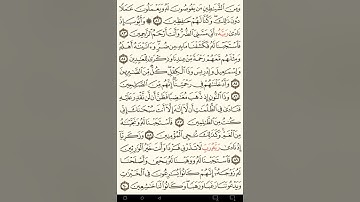 وَمِنَ ٱلشَّيَٰطِينِ مَن يَغُوصُونَ لَهُۥ وَيَعْمَلُونَ عَمَلًا
دُونَ ذَٰلِكَ وَكُنَّا لَهُمْ حَٰفِظِينَ ٨٢ ۞ وَأَيُّوبَ إِذْ
نَادَىٰ رَبَّهُۥٓ أَنِّى مَسَّنِىَ ٱلضُّرُّ وَأَنتَ أَرْحَمُ ٱلرَّٰحِمِينَ ٨٣
فَٱسْتَجَبْنَا لَهُۥ فَكَشَفْنَا مَا بِهِۦ مِن ضُرٍّ وَءَاتَيْنَٰهُ أَهْلَهُۥ
وَمِثْلَهُم مَّعَهُمْ رَحْمَةً مِّنْ عِندِنَا وَذِكْرَىٰ لِلْعَٰبِدِينَ ٨٤
وَإِسْمَٰعِيلَ وَإِدْرِيسَ وَذَا ٱلْكِفْلِ كُلٌّ مِّنَ ٱلصَّٰبِرِينَ
٨٥ وَأَدْخَلْنَٰهُمْ فِى رَحْمَتِنَآ إِنَّهُم مِّنَ ٱلصَّٰلِحِينَ
٨٦ وَذَا ٱلنُّونِ إِذ ذَّهَبَ مُغَٰضِبًا فَظَنَّ أَن لَّن نَّقْدِرَ عَلَيْهِ
فَنَادَىٰ فِى ٱلظُّلُمَٰتِ أَن لَّآ إِلَٰهَ إِلَّآ أَنتَ سُبْحَٰنَكَ إِنِّى
كُنتُ مِنَ ٱلظَّٰلِمِينَ ٨٧ فَٱسْتَجَبْنَا لَهُۥ وَنَجَّيْنَٰهُ
مِنَ ٱلْغَمِّ وَكَذَٰلِكَ نُـۨجِى ٱلْمُؤْمِنِينَ ٨٨ وَزَكَرِيَّآ
إِذْ نَادَىٰ رَبَّهُۥ رَبِّ لَا تَذَرْنِى فَرْدًا وَأَنتَ خَيْرُ ٱلْوَٰرِثِينَ
٨٩ فَٱسْتَجَبْنَا لَهُۥ وَوَهَبْنَا لَهُۥ يَحْيَىٰ وَأَصْلَحْنَا
لَهُۥ زَوْجَهُۥٓ إِنَّهُمْ كَانُوا۟ يُسَٰرِعُونَ فِى ٱلْخَيْرَٰتِ
وَيَدْعُونَنَا رَغَبًا وَرَهَبًا وَكَانُوا۟ لَنَا خَٰشِعِينَ ٩٠